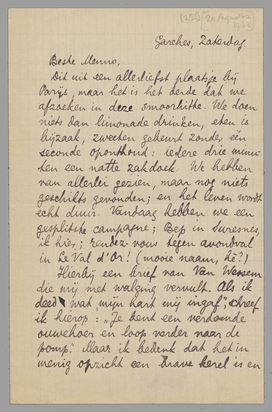 (25 Augustus
1933)
Garches, Zaterdag
Beste Menno,
Dit uit een allerliefst plaatsje bij
Parijs, maar het is het derde dat we
afzoeken in deze smoorhitte. We doen
niets dan limonade drinken, eten is
bijzaak, zweeten gebeurt zonder één
seconde oponthoud: iedere drie minu-
ten een natte zakdoek. We hebben
van allerlei gezien, maar nog niets
geschikts gevonden; en het leven wordt
echt duur. Vandaag hebben we een
gesplitste campagne; Bep in Suresnes,
ik hier; rendez-vous tegen avondval
in Le Val d'Or! (mooie naam, hè?)
Hierbij een brief van Van Wessem
die mij met walging vervult. Als ik
deed wat „mijn hart mij ingaf”, schreef
ik hierop: „Je bent een verdomde
ouwehoer en loop verder naar de
pomp.” Maar ik bedenk dat het in
menig opzicht een brave kerel is en